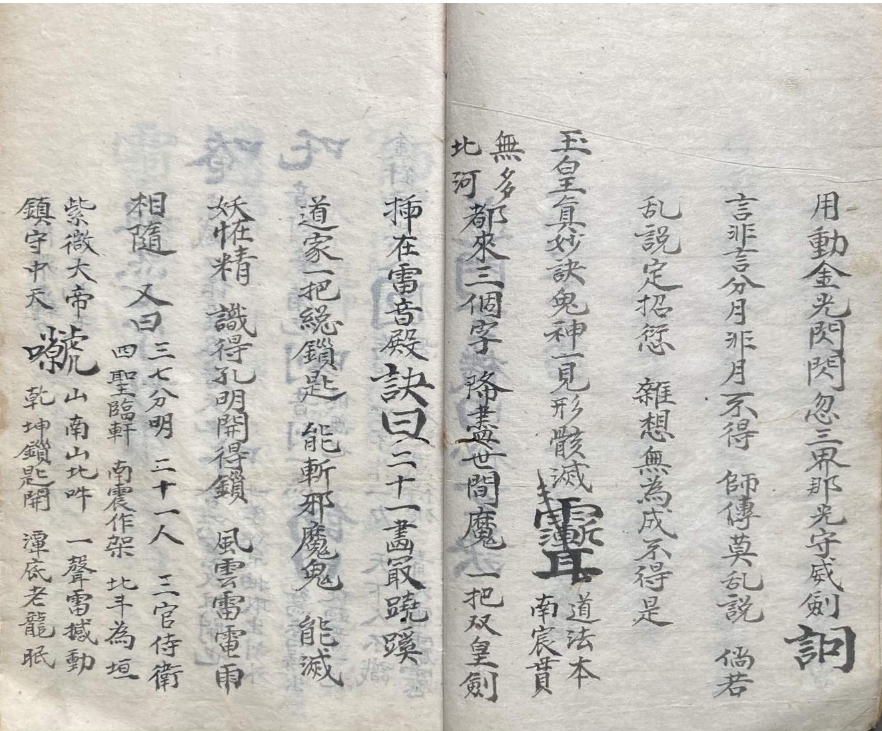 用動金光閃閃忽三界那光守威劍
言非言分月非月不得 師傳莫乱說 倘若
乱說定招愆 雜想無為成不得是
玉皇真妙訣鬼神一見形骸滅 道法本
南宸貫
無多
北河
都來三個字 降盡世間魔 一把双皇劍
揷在雷音殿 訣曰二十一畵最蹺蹊
道家一把総鎖匙 能斬邪魔鬼 能滅
妖恠精 識得孔明開得鎖 風雲雷電雨
相隨 又曰 三七分明 二十一人 三官侍衛
四聖臨軒 南震作架 北斗為垣
紫微大帝
鎮守中天
山南山北吽 一聲雷撼動
乾坤鎖匙開 潭底老龍眠